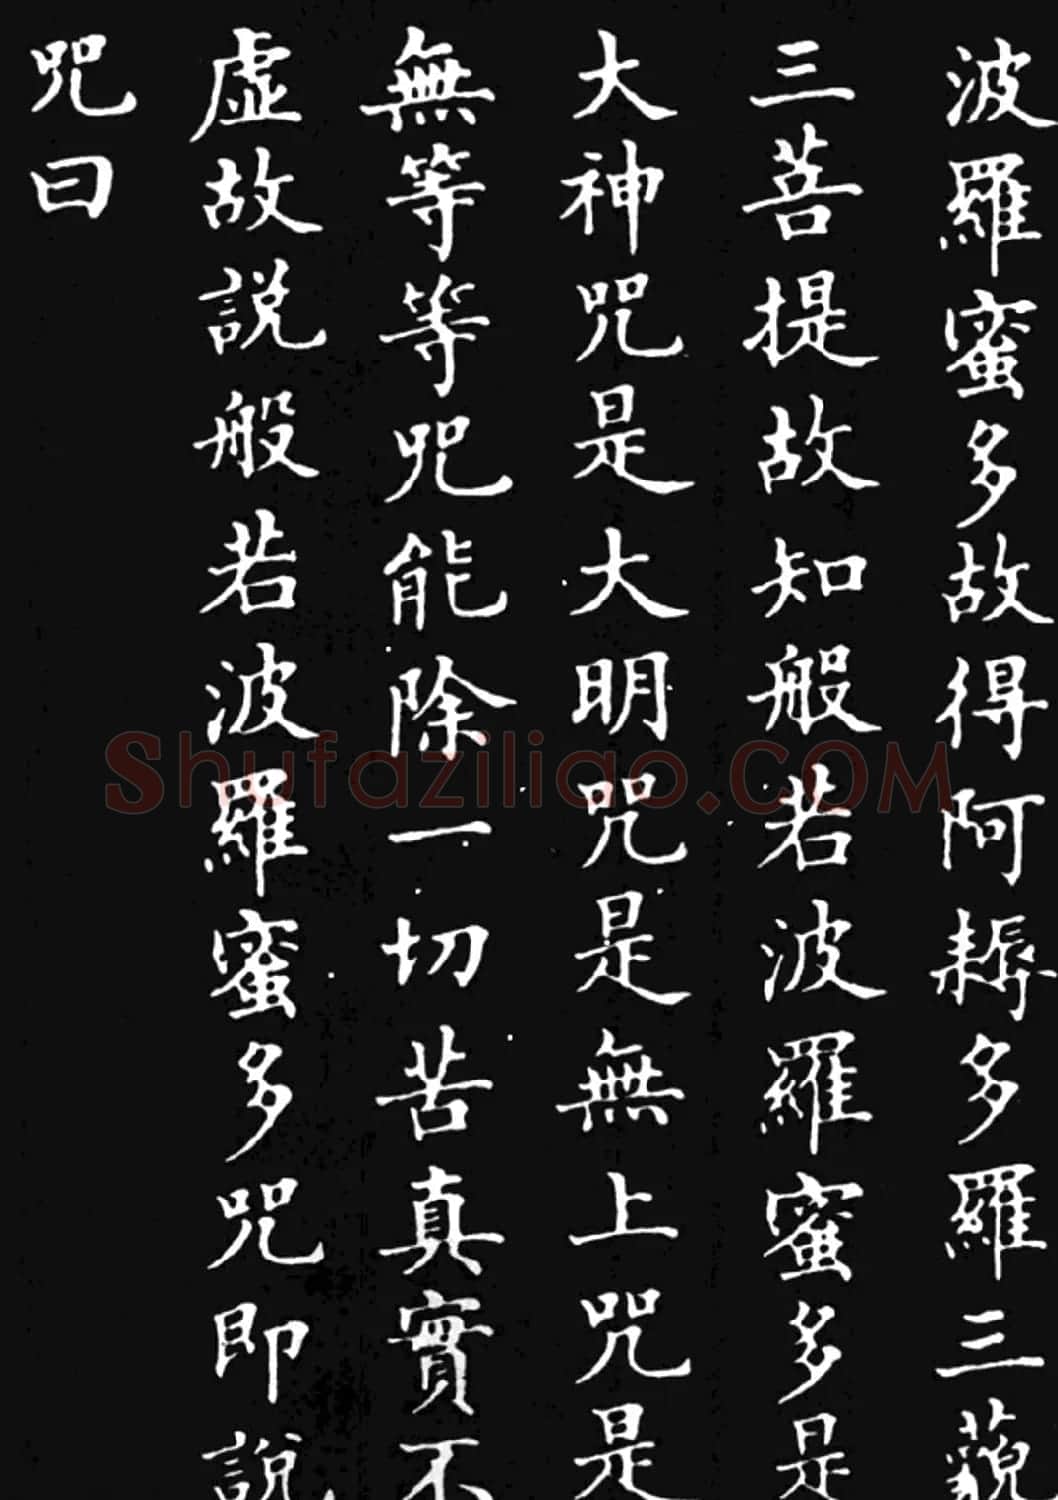 波羅蜜多故得阿耨多羅三藐
三菩提故知般若波羅蜜多是
大神咒是大明咒是無上咒是
無等等咒能除一切苦真實不
虛故説般若波羅蜜多咒即説
咒曰
Shufaziliao.COM